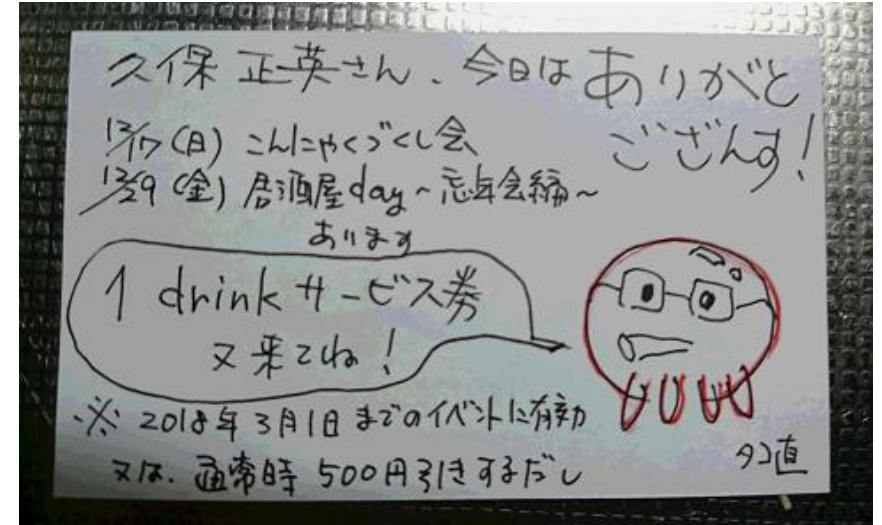 久保 正英さん、今日は ありがと
ござんす!
12/17(日) こんにゃくづくし会
12/29(金) 居酒屋day~忘年会編~
あります
1 drink サービス券
又来てね!
※ 2018年3月1日までのイベントに有効
又は、通常時 500円引きするだし
タコ直